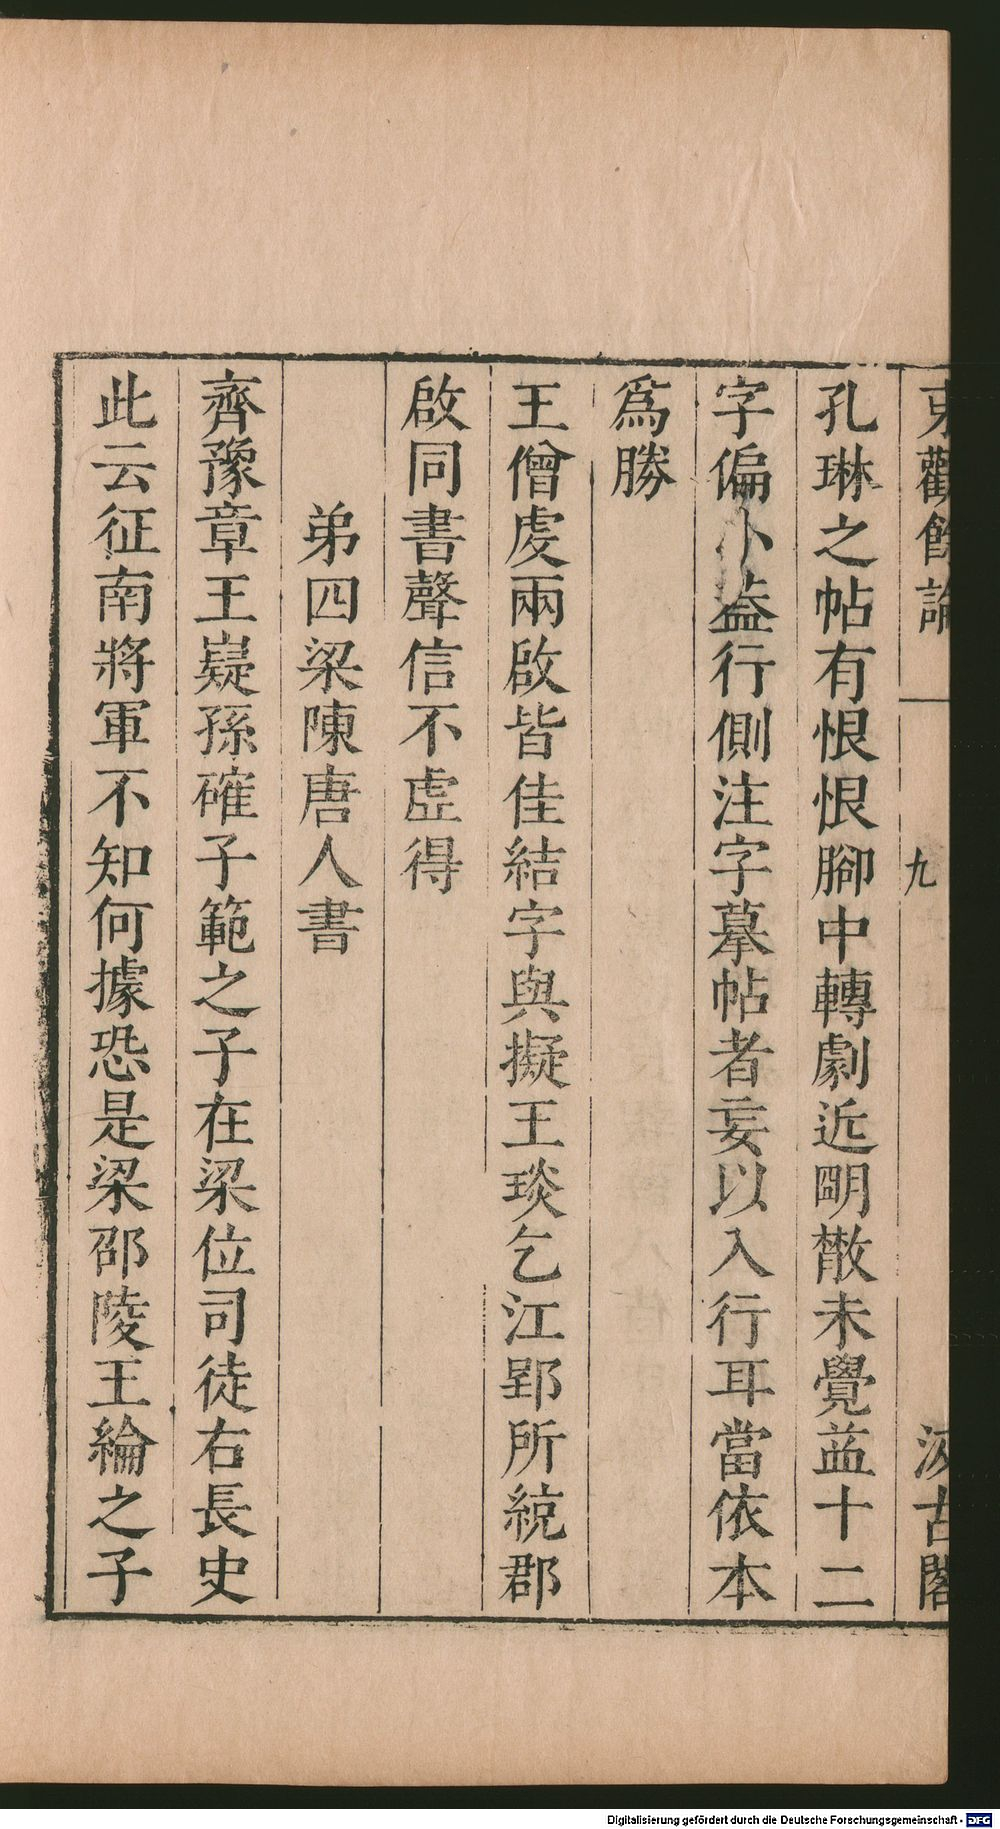 東觀餘論 一 九 汲古閣
孔琳之帖有恨恨腳中轉劇近明散未覺益十二
字偏小益行側注字摹帖者妄以入行耳當依本
爲勝
王僧虔兩啟皆佳結字與擬王琰乞江郢所統郡
啟同書聲信不虛得
弟四梁陳唐人書
齊豫章王嶷孫確子範之子在梁位司徒右長史
此云征南將軍不知何據恐是梁邵陵王綸之子
Digitalisierung gefördert durch die Deutsche Forschungsgemeinschaft - DFG